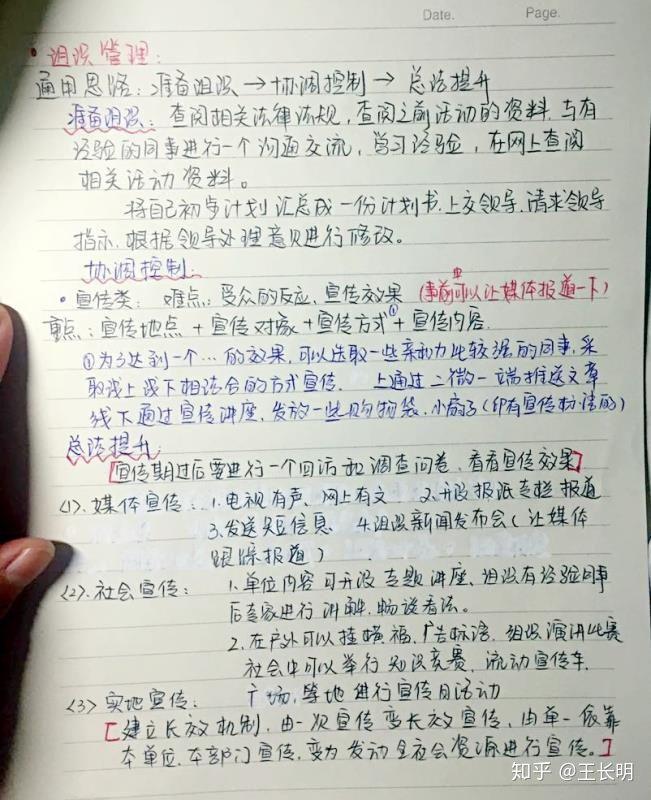 Date. Page.
• 组织管理:
通用思路: 准备组织 → 协调控制 → 总结提升
准备组织: 查阅相关法律法规, 查阅之前活动的资料. 与有
经验的同事进行一个沟通交流, 学习经验, 在网上查阅
相关活动资料。
将自己初步计划汇总成一份计划书. 上交领导. 请求领导
指示. 根据领导处理意见进行修改。
协调控制:
• 宣传类: 难点: 受众的反应、宣传效果 (事前中可以让媒体报道一下)
重点: 宣传地点 + 宣传对象 + 宣传方式① + 宣传内容.
①为了达到一个…的效果, 可以选取一些亲和力比较强的同事, 采
取线上线下相结合的方式宣传. 上通过二微一端推送文章
线下通过宣传讲座, 发放一些购物袋. 小扇子(印有宣传标语的)
总结提升:
[宣传期过后要进行一个回访和调查问卷, 看看宣传效果]
(1). 媒体宣传: 1. 电视有声、网上有文 2. 开设报纸专栏报道
3. 发送短信息 4. 组织新闻发布会(让媒体
跟踪报道)
(2). 社会宣传: 1. 单位内容可开设专题讲座. 组织有经验同事
后专家进行讲解. 畅谈看法。
2. 在户外可以挂横福. 广告标语. 组织演讲比赛
社会中可以举行知识竞赛. 流动宣传车.
(3) 实地宣传: 广场, 等地进行宣传日活动
[建立长效机制, 由一次宣传变长效宣传, 由单一依靠
本单位. 本部门宣传. 变为发动全社会资源进行宣传。]
知乎 @王长明